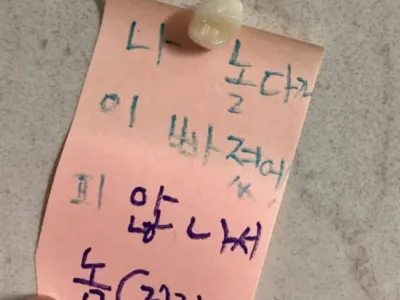 나 놀다가
이 빠졌어
피 않 나서